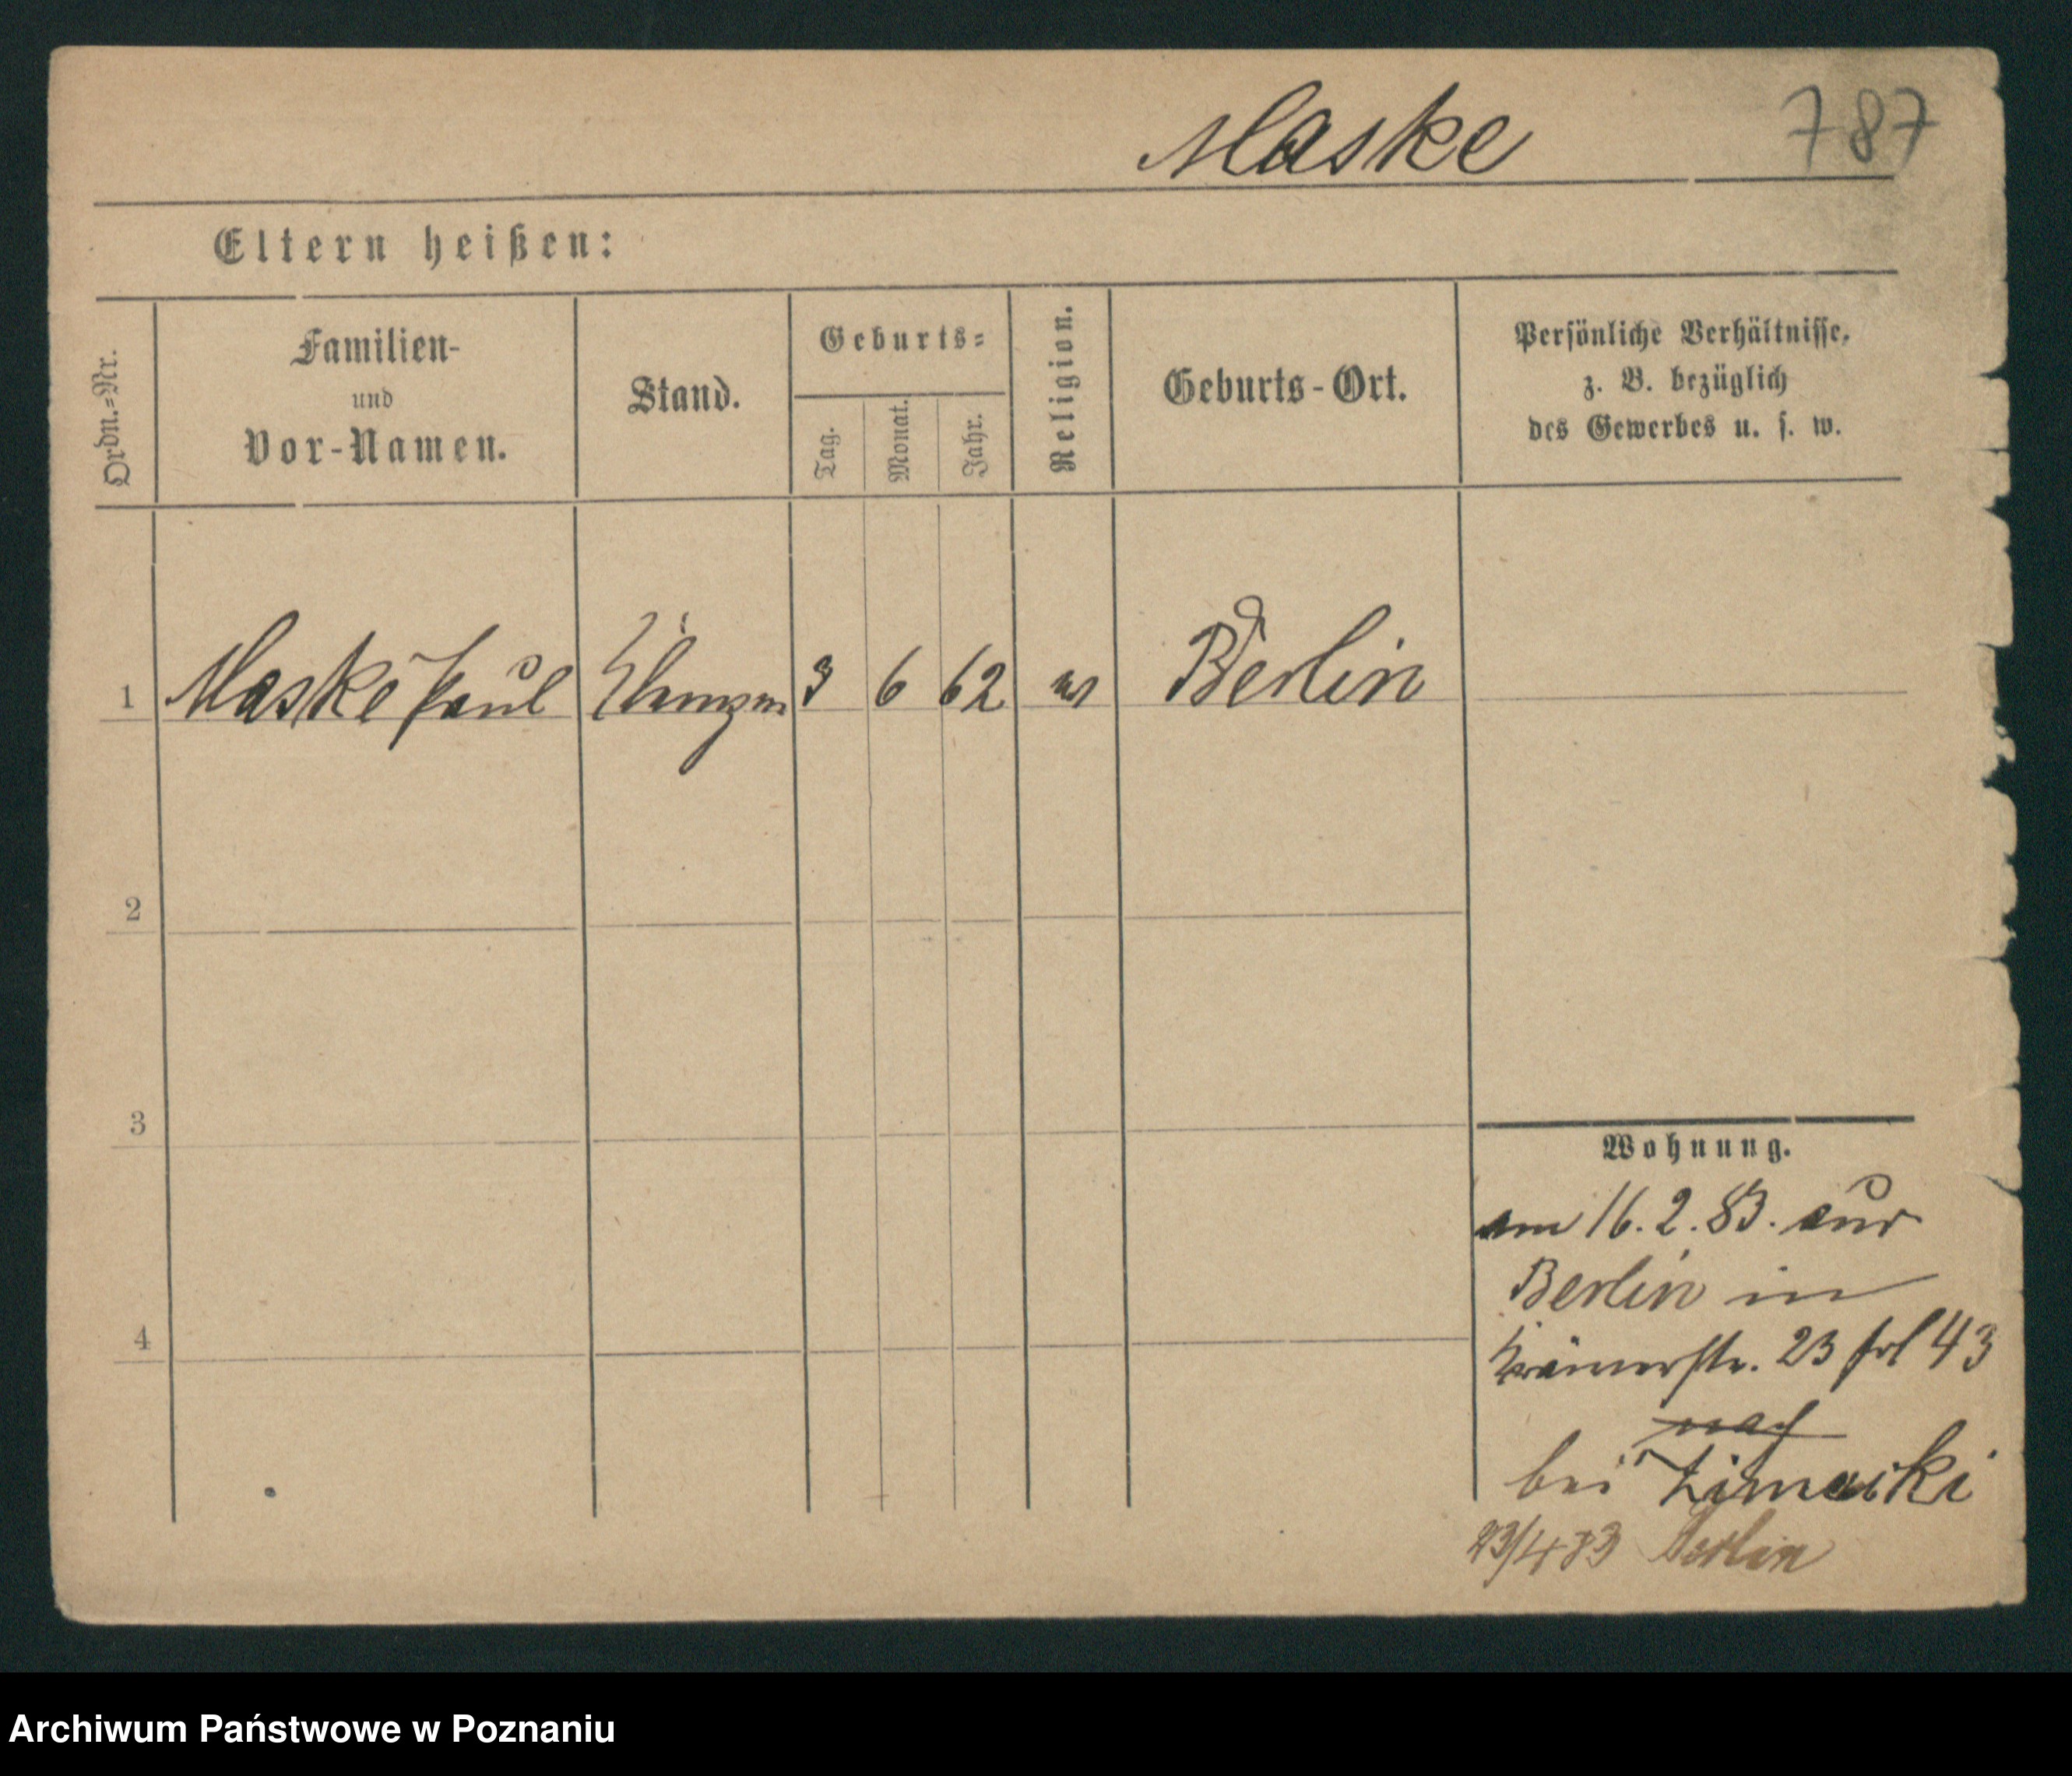 Maske 787
Eltern heißen:
Ordn.=Nr.
Familien-
und
Vor-Namen.
Stand.
Geburts=
Tag.
Monat.
Jahr.
Religion.
Geburts-Ort.
Persönliche Verhältnisse,
z. B. bezüglich
des Gewerbes u. s. w.
1 Maske Paul 3 6 62 Berlin
2
3
4
Wohnung.
am 16. 2. 83. aus
Berlin in
Krämerstr. 23 fol 43
nach
bei
23/4 83 Berlin
Archiwum Państwowe w Poznaniu